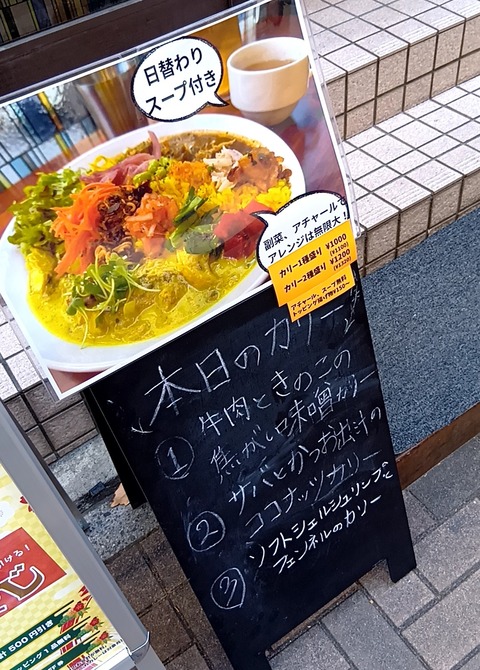 日替わり
スープ付き
副菜、アチャールで
アレンジは無限大!
カリー1種盛り ¥1000
(¥1100)
カリー2種盛り ¥1200
(¥1320)
アチャール、スープ無料
トッピング揚げ物¥150~
本日のカリー
① 牛肉ときのこの
焦がし味噌カリー
② サバとかつお出汁の
ココナッツカリー
③ ソフトシェルシュリンプと
フェンネルのカリー
500円引き
ッピング1品無料